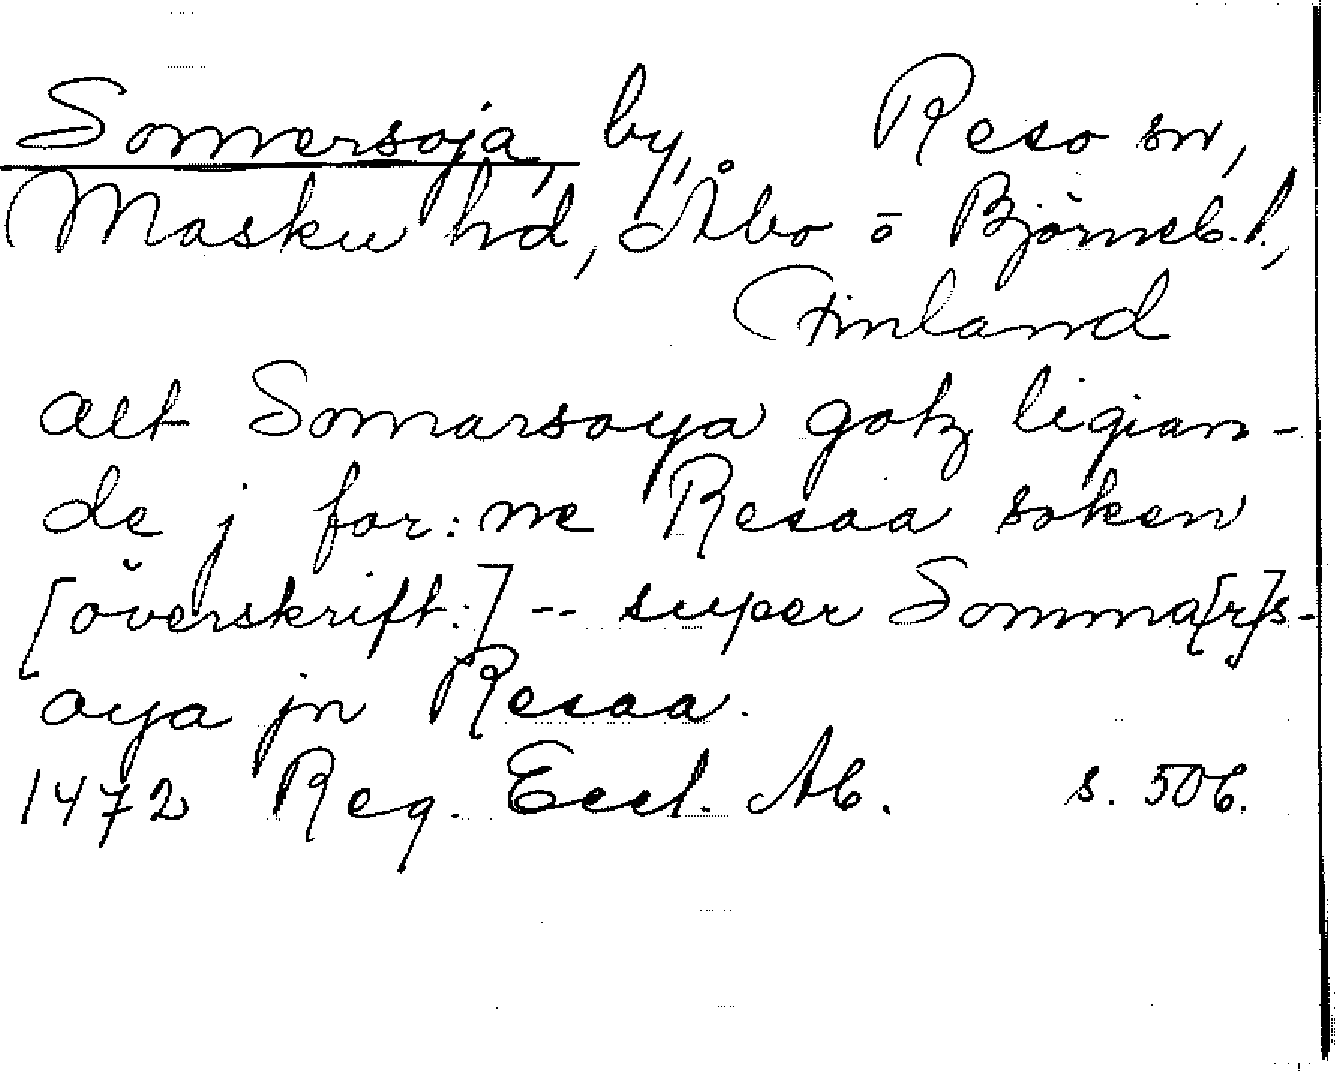 Somersoja, by, Reso sn,
Masku hd, Åbo o Björneb. l.,
Finland
alt Somarsoya gotz ligian-
de j for: ne Resaa soken
[överskrift:] -- super Somma[r]s-
oya jn Resaa.
1472 Reg. Eccl. Ab. s. 506.